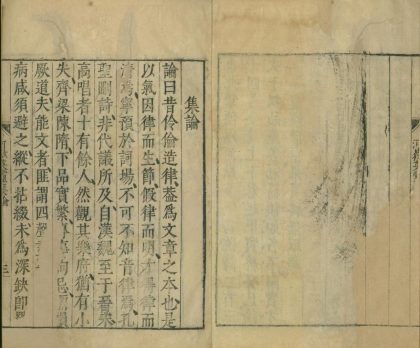 集論
論曰昔伶倫造律蓋為文章之本也是
以氣因律而生節假律而明才得律而
清焉寧預於詞場不可不知音律焉孔
聖刪詩非代議所及自漢魏至于晉宋
高唱者十有餘人然觀其樂府猶有小
失齊梁陳隋下品實繁專事拘忌彌損
厥道夫能文者匪謂四聲
病咸須避之縱不拈綴未為深缺即
三